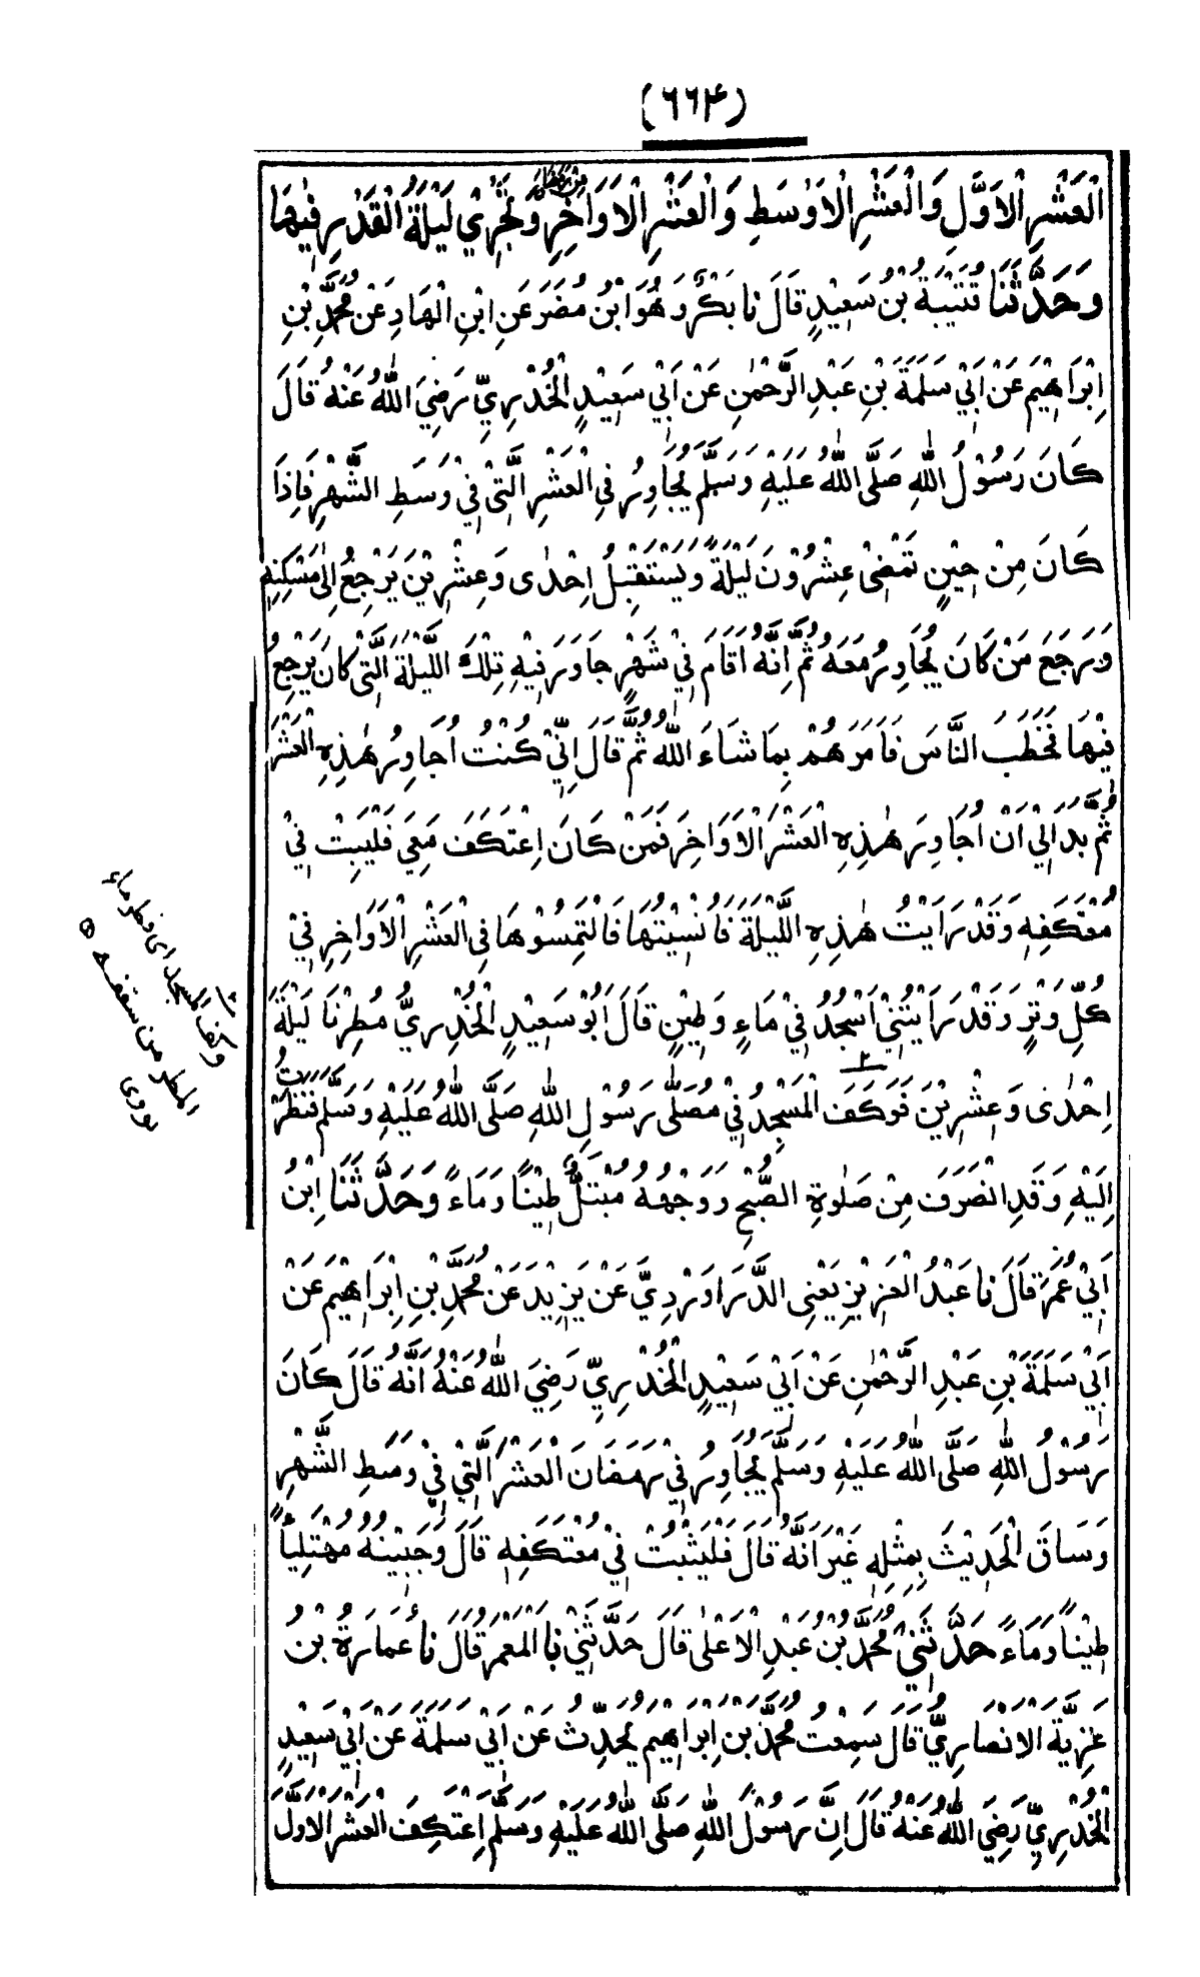 (٦٦۴)
الْعَشْرِ الْاَوَّلِ وَالْعَشْرِ الْاَوْسَطِ وَالْعَشْرِ الْاَوَاخِرِ وَتَحَرِّيْ لَيْلَةُ الْقَدْرِ فِيْهَا
وَحَدَّثَنَا قُتَيْبَةُ بْنُ سَعِيْدٍ قَالَ نا بَكْرٌ وَهُوَ ابْنُ مُضَرَ عَنِ ابْنِ الْهَادِ عَنْ مُحَمَّدِ بْنِ
اِبْرَاهِيْمَ عَنْ اَبِيْ سَلَمَةَ بْنِ عَبْدِ الرَّحْمٰنِ عَنْ اَبِيْ سَعِيْدٍ الْخُدْرِيِّ رَضِيَ اللّٰهُ عَنْهُ قَالَ
كَانَ رَسُوْلُ اللّٰهِ صَلَّى اللّٰهُ عَلَيْهِ وَسَلَّمَ يُجَاوِرُ فِي الْعَشْرِ الَّتِيْ فِيْ وَسَطِ الشَّهْرِ فَاِذَا
كَانَ مِنْ حِيْنِ تَمْضِيْ عِشْرُوْنَ لَيْلَةً وَيَسْتَقْبِلُ اِحْدٰى وَعِشْرِيْنَ يَرْجِعُ اِلٰى مَسْكَنِهِ
وَرَجَعَ مَنْ كَانَ يُجَاوِرُ مَعَهُ ثُمَّ اِنَّهُ اَقَامَ فِيْ شَهْرٍ جَاوَرَ فِيْهِ تِلْكَ اللَّيْلَةَ الَّتِيْ كَانَ يَرْجِعُ
فِيْهَا فَخَطَبَ النَّاسَ فَاَمَرَهُمْ بِمَا شَاءَ اللّٰهُ ثُمَّ قَالَ اِنِّيْ كُنْتُ اُجَاوِرُ هٰذِهِ الْعَشْرَ
ثُمَّ بَدَا لِيْ اَنْ اُجَاوِرَ هٰذِهِ الْعَشْرَ الْاَوَاخِرَ فَمَنْ كَانَ اِعْتَكَفَ مَعِيَ فَلْيَبِتْ فِيْ
مُعْتَكَفِهِ وَقَدْ رَاَيْتُ هٰذِهِ اللَّيْلَةَ فَاُنْسِيْتُهَا فَالْتَمِسُوْهَا فِي الْعَشْرِ الْاَوَاخِرِ فِيْ
كُلِّ وَتْرٍ وَقَدْ رَاَيْتُنِيْ اَسْجُدُ فِيْ مَاءٍ وَطِيْنٍ قَالَ اَبُوْ سَعِيْدٍ الْخُدْرِيُّ مُطِرْنَا لَيْلَةَ
اِحْدٰى وَعِشْرِيْنَ فَوَكَفَ الْمَسْجِدُ فِيْ مُصَلّٰى رَسُوْلِ اللّٰهِ صَلَّى اللّٰهُ عَلَيْهِ وَسَلَّمَ فَنَظَرْتُ
اِلَيْهِ وَقَدِ انْصَرَفَ مِنْ صَلٰوةِ الصُّبْحِ وَوَجْهُهُ مُبْتَلٌّ طِيْنًا وَمَاءً وَحَدَّثَنَا ابْنُ
اَبِيْ عُمَرَ قَالَ نا عَبْدُ الْعَزِيْزِ يَعْنِى الدَّرَاوَرْدِيَّ عَنْ يَزِيْدَ عَنْ مُحَمَّدِ بْنِ اِبْرَاهِيْمَ عَنْ
اَبِيْ سَلَمَةَ بْنِ عَبْدِ الرَّحْمٰنِ عَنْ اَبِيْ سَعِيْدٍ الْخُدْرِيِّ رَضِيَ اللّٰهُ عَنْهُ اَنَّهُ قَالَ كَانَ
رَسُوْلُ اللّٰهِ صَلَّى اللّٰهُ عَلَيْهِ وَسَلَّمَ يُجَاوِرُ فِيْ رَمَضَانَ الْعَشْرَ الَّتِيْ فِيْ وَسَطِ الشَّهْرِ
وَسَاقَ الْحَدِيْثَ بِمِثْلِهِ غَيْرَ اَنَّهُ قَالَ فَلْيَثْبُتْ فِيْ مُعْتَكَفِهِ قَالَ وَجَبِيْنُهُ مُمْتَلِيًا
طِيْنًا وَمَاءً حَدَّثَنِيْ مُحَمَّدُ بْنُ عَبْدِ الْاَعْلٰى قَالَ حَدَّثَنِيْ نا الْمُعْمَرُ قَالَ نا عُمَارَةُ بْنُ
غَزِيَّةَ الْاَنْصَارِيُّ قَالَ سَمِعْتُ مُحَمَّدَ بْنَ اِبْرَاهِيْمَ يُحَدِّثُ عَنْ اَبِيْ سَلَمَةَ عَنْ اَبِيْ سَعِيْدٍ
الْخُدْرِيِّ رَضِيَ اللّٰهُ عَنْهُ قَالَ اِنَّ رَسُوْلَ اللّٰهِ صَلَّى اللّٰهُ عَلَيْهِ وَسَلَّمَ اِعْتَكَفَ الْعَشْرَ الْاَوَّلَ
وكف المسجد اى قطر ماء
المطر من سقفه
نووى